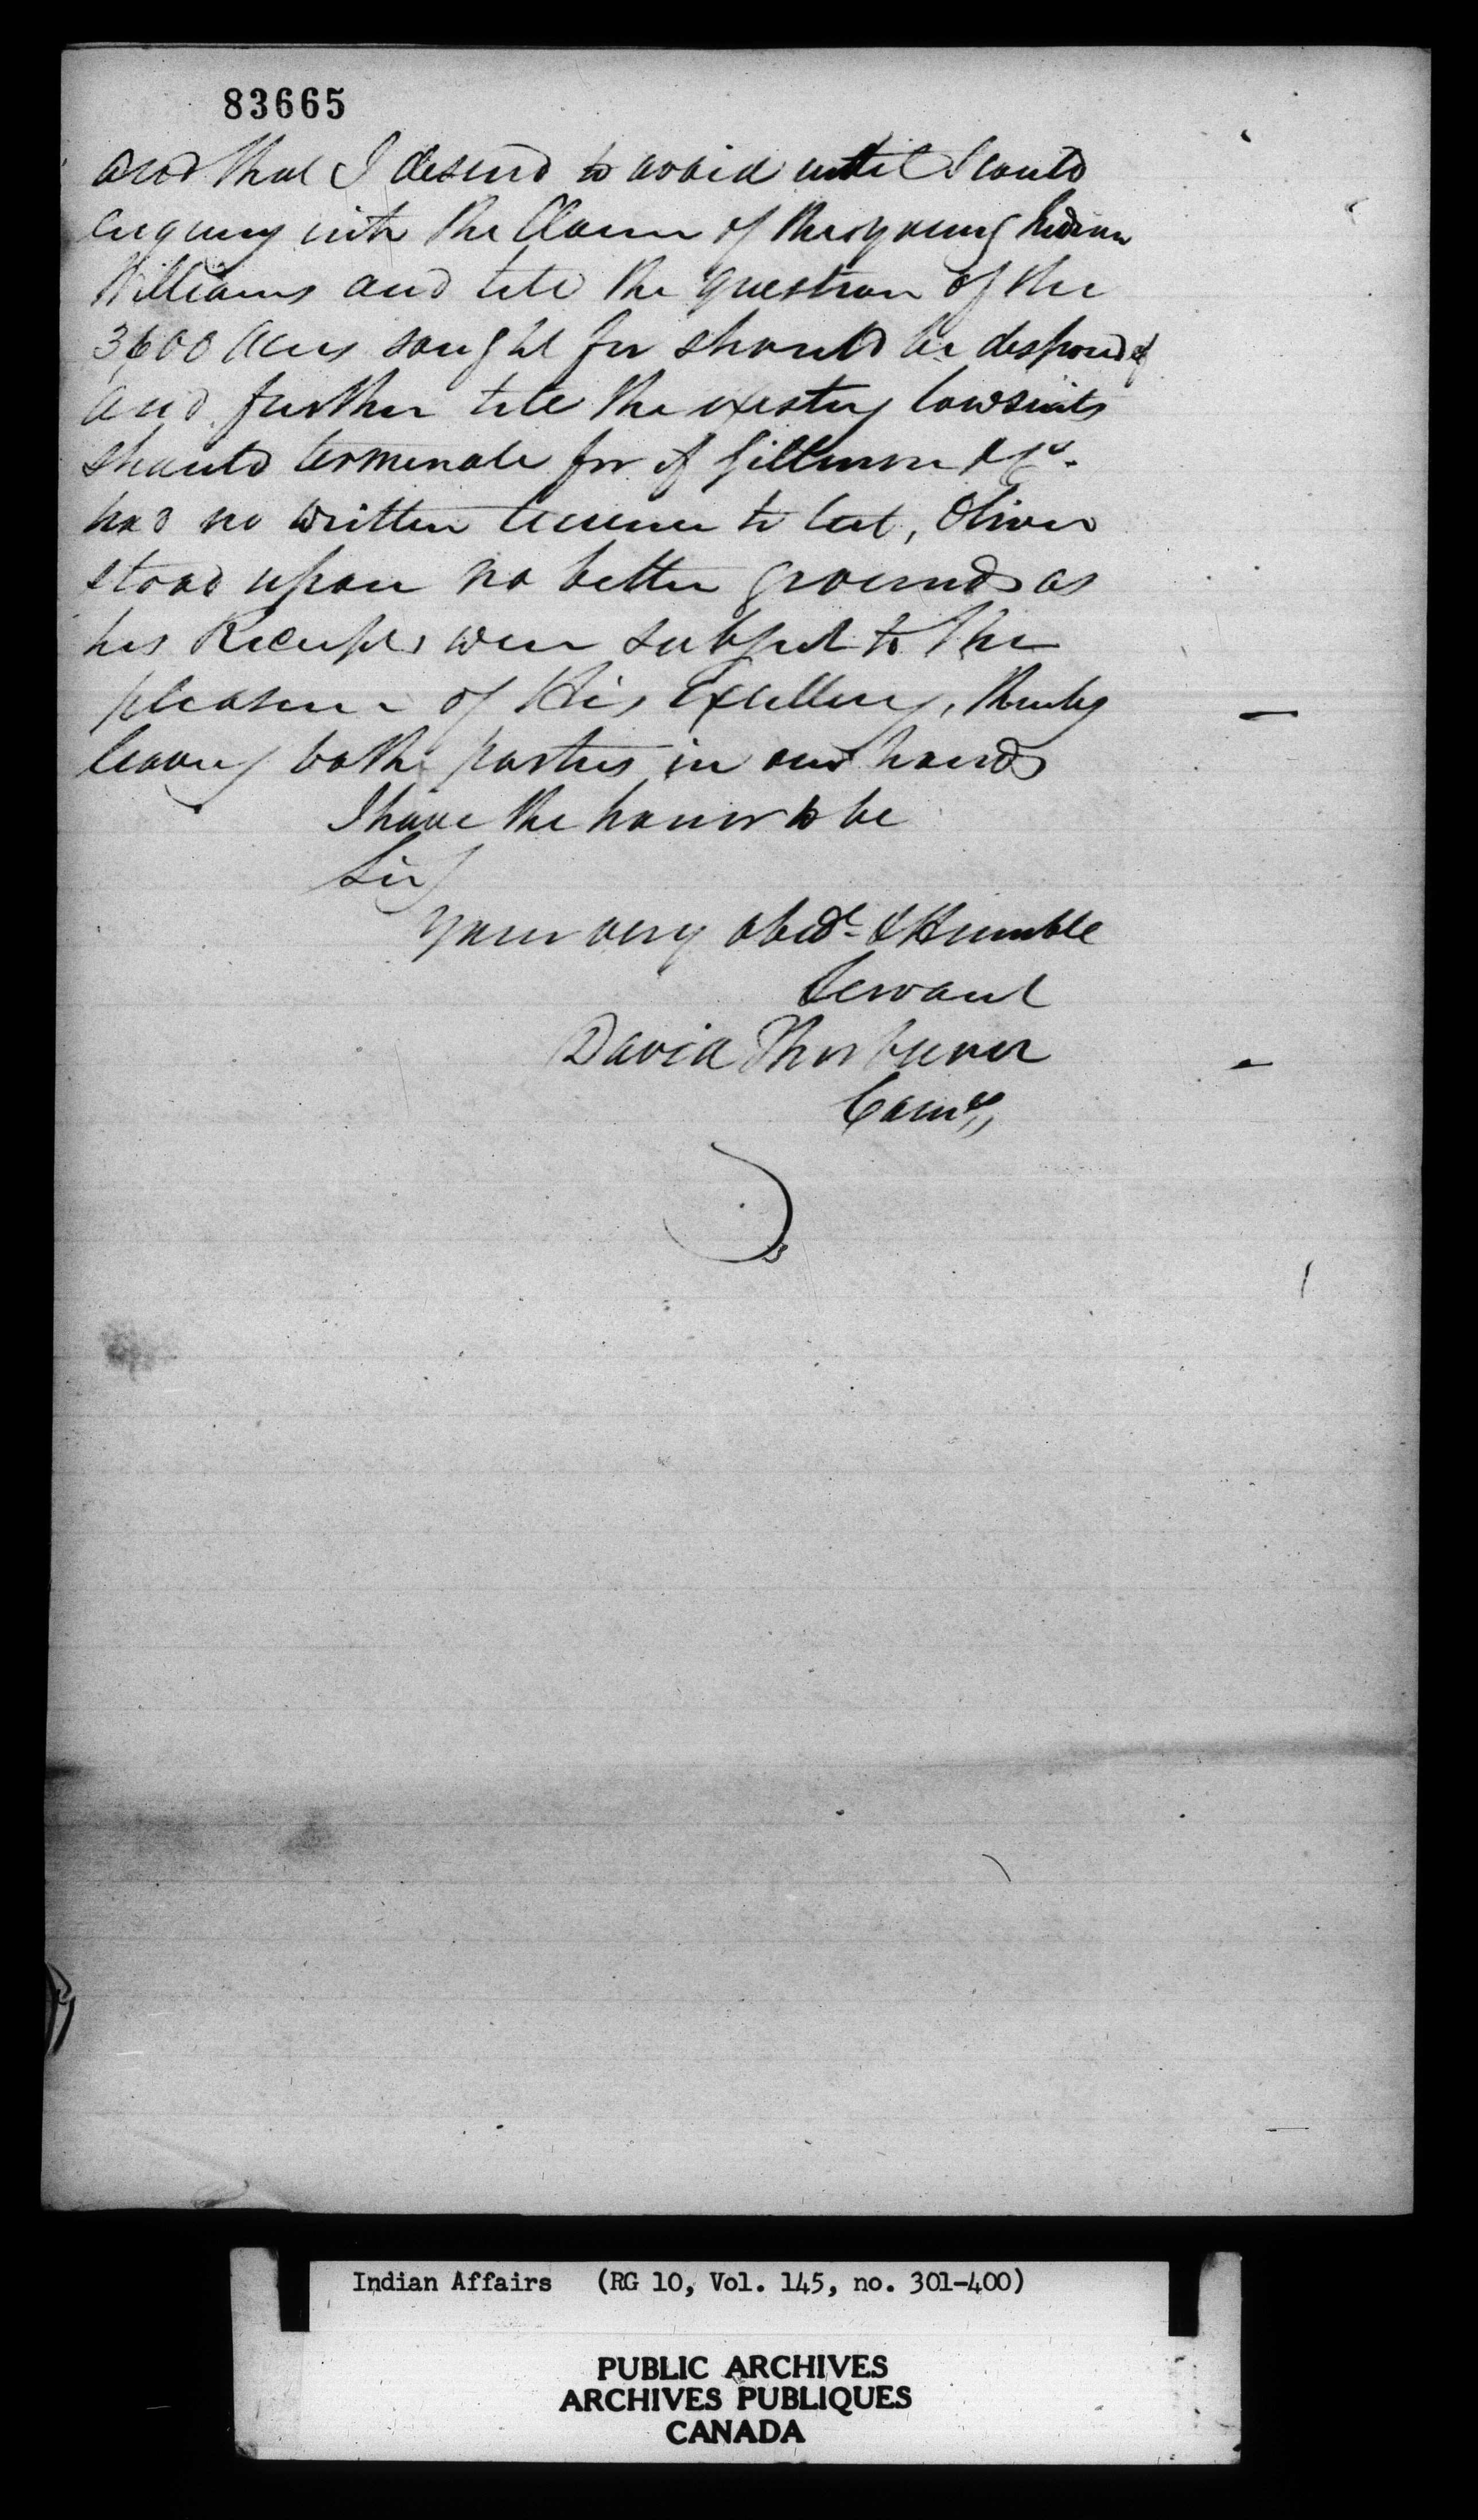 83665
and that I desired to avoid until I could
enquiry into the Claim of the young Indian
Williams and till the question of the
3600 Acres sought for should be disposed of
and further till the existing lawsuits
should terminate for if Gillmore & Co.
had no written license to cut, Oliver
stood upon no better grounds as
his Receipts were subject to the
pleasure of His Excellency, thereby
leaving both parties in our hands
I have the honor to be
Sir
Your very obedt. & Humble
Servant
David Thorburn
Comr
Indian Affairs (RG 10, Vol. 145, no. 301-400)
PUBLIC ARCHIVES
ARCHIVES PUBLIQUES
CANADA